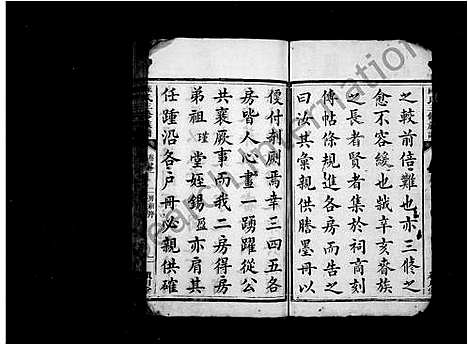 之較前倍難也亦三修之
愈不容緩也玆辛亥春族
之長者賢者集於祠高刻
傳帖條規進各房而告之
曰汝其彙親供謄墨冊以
便付剞劂焉幸三四五各
房皆人心畫一踴躍從公
共襄厥事而我二房得房
弟祖瑾堂姪錫盈亦肩其
任踵沿各戶毋必親供確